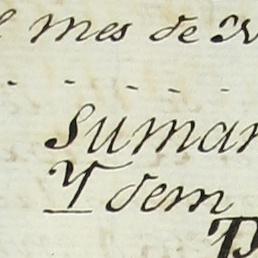 mes de
Suma
Y dem